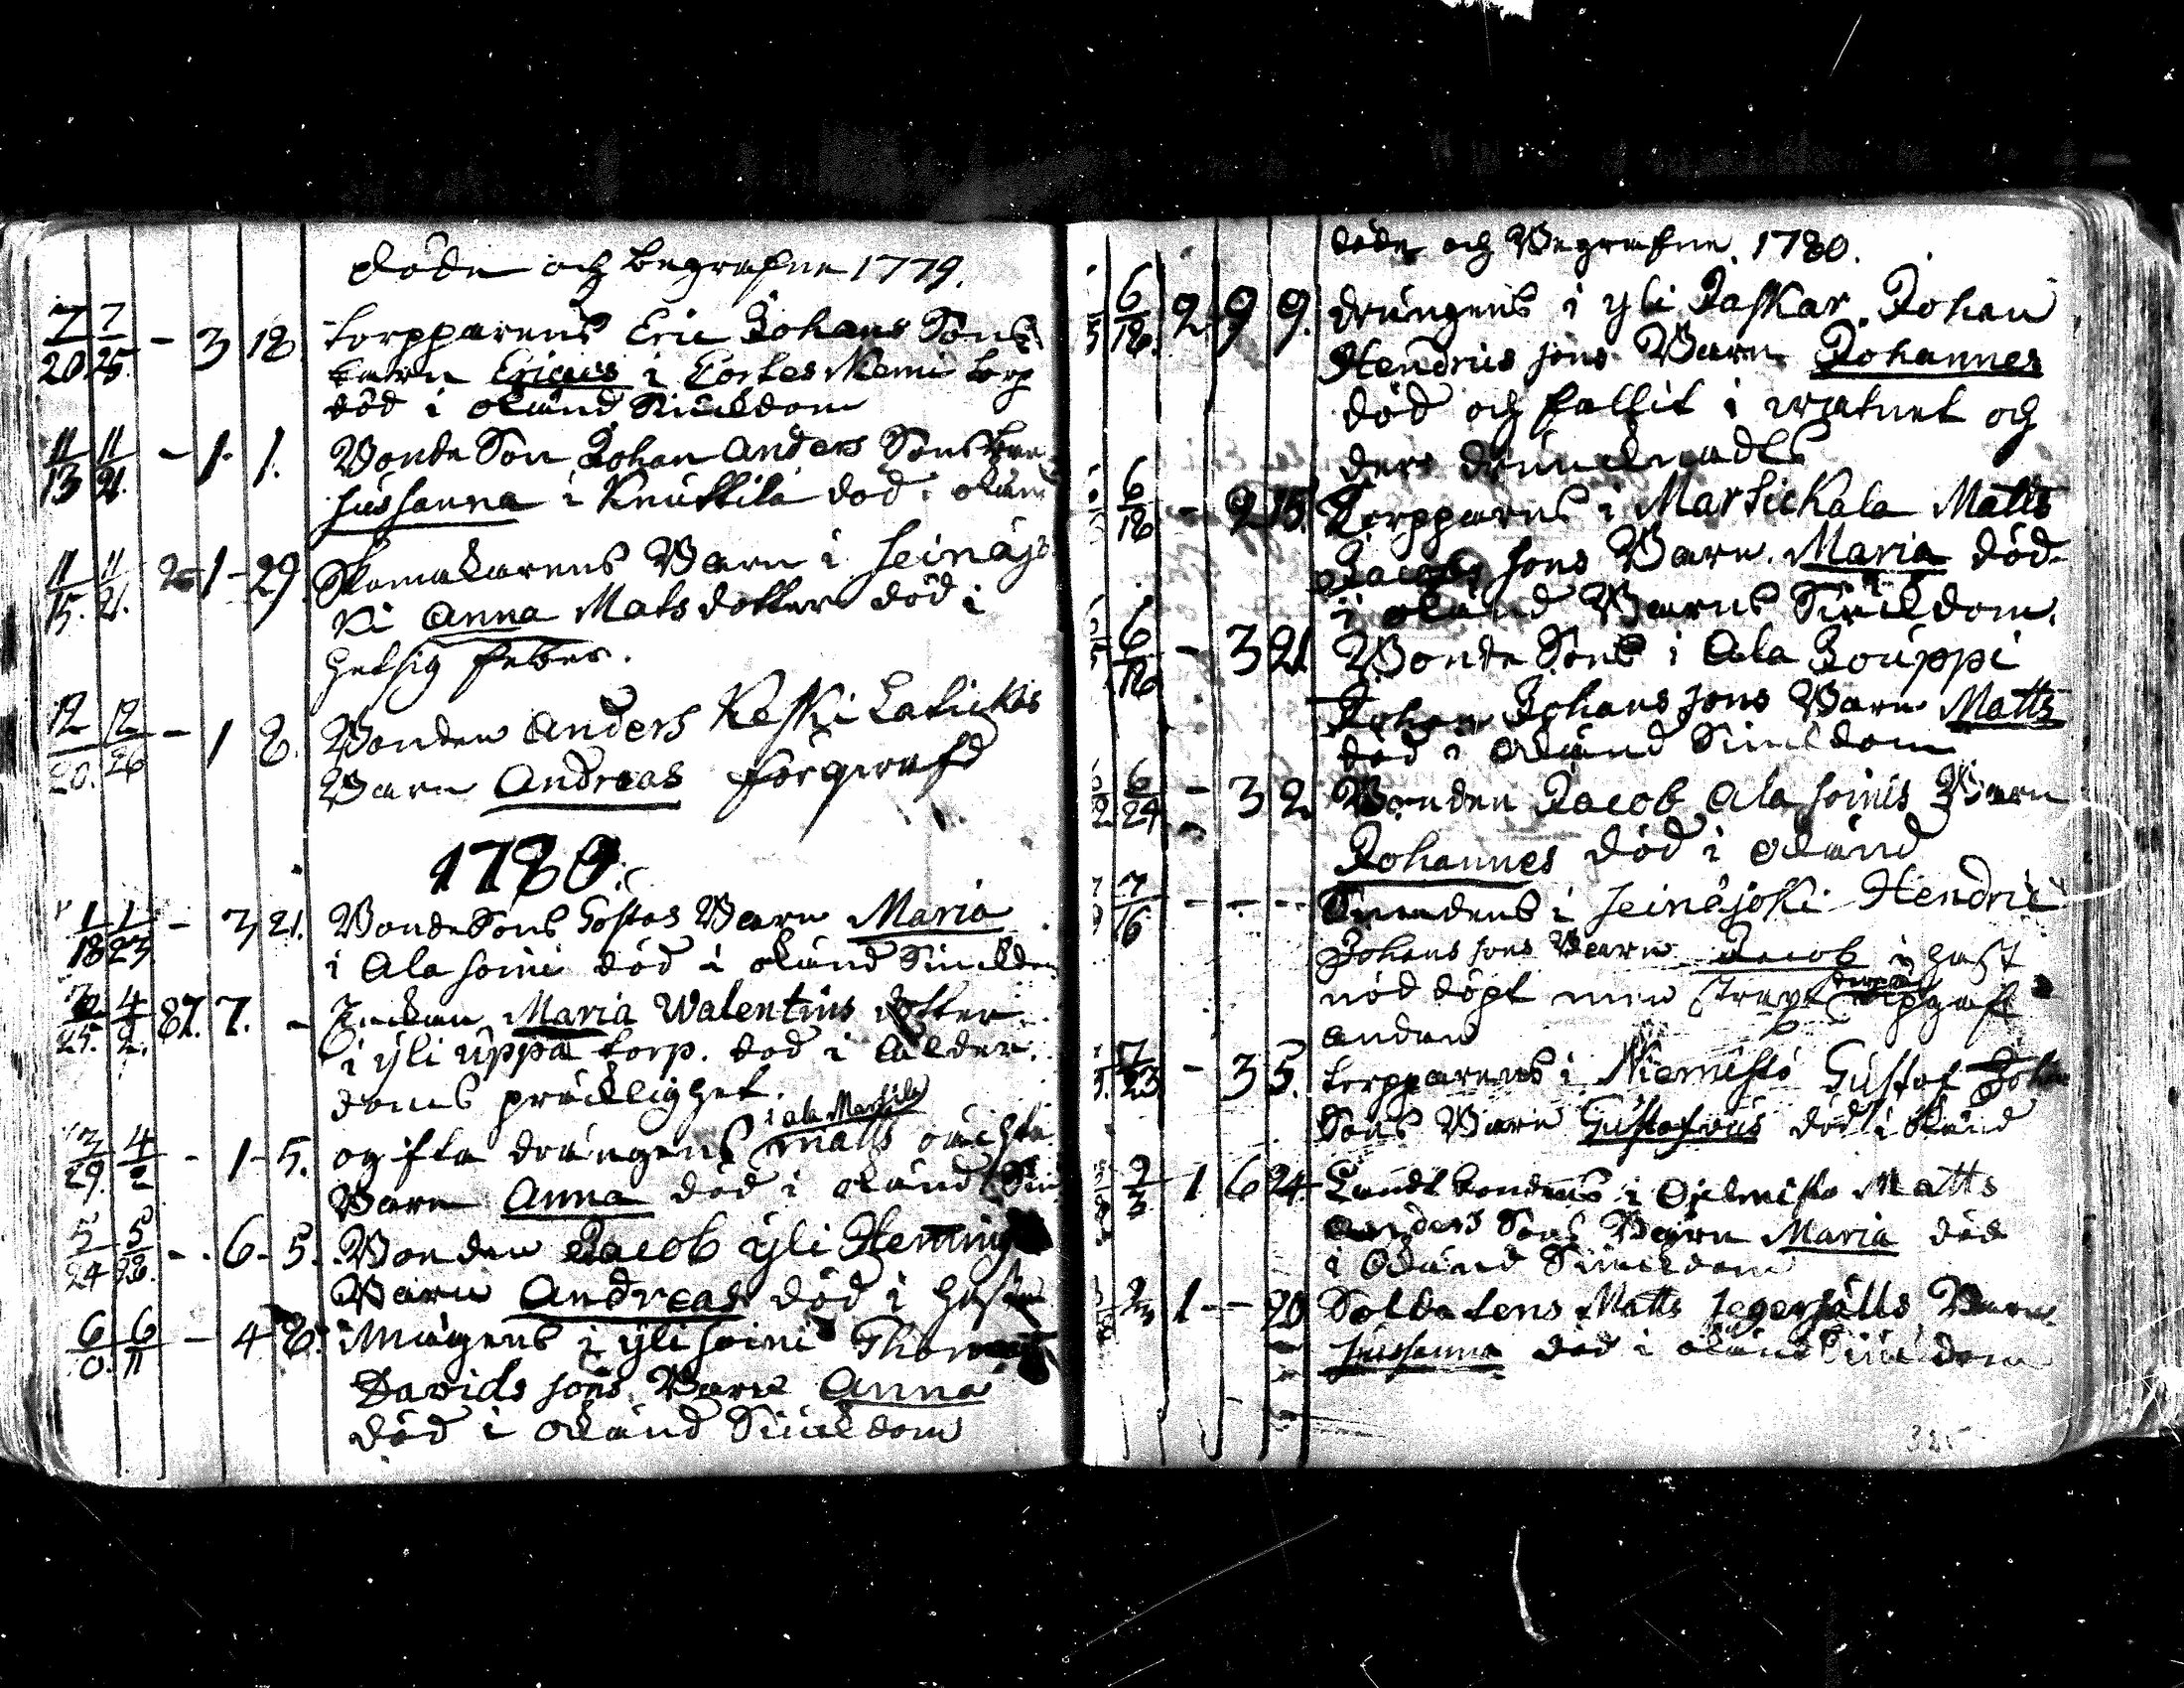 Döde och begrafne 1779.
7/20 7/25 - 3 18 torpparens Eric Johans Sons
barn Ericus i Corteskemi torp
död i okänd Siukdom
11/13 11/21. - 1. 1. Bonde Son Johan Anders Sons
Sussanna i Knuttila död i okän
11/15. 11/21. 2 - 1 - 29. Skomakarens Barn i Seinäjo
ki Anna Matsdotter död i
hetsig feber.
12/20. 12/26 - 1 8. Bonden Anders Keski
Barn Andreas förqwafd
1780.
1/18 1/23 - 3 21. BondeSons Gostas Barn Maria
i Ala soini död i okänd Siukdo
25. 4/2. 87. 7. - Enkan Maria Walentins dotter
i yli uppa torp. död i Ålder
doms präcklighet.
i ala Marsila
3/29. 4/2 - 1 - 5. ogifta drängens Matts
Barn Anna död i okänd Siu
5/24 5/28. - 6 - 5. Bonden Jacob yli Heming
Barn Andreas död i
6/ 6/11 - 4 8. Mågens i yli soini Thomas
Davids sons Barn Anna
död i okänd Siukdom
döde och Begrafne. 1780.
6/18. 2 9 9. drängens i yli Paskar Johan
Hendrics sons Barn Johannes
död och fallit i watnet och
der drunknades
6/18 - 2 15. Torpparens i Marttickala Matts
Jacobs sons Barn Maria död
i okänd Barns Siukdom.
6/18 - 3 21 Bonde Sons i Ala Jouppi
Johan Johans sons Barn Matts
död i okänd Siukdom
6/24 - 3 2 Bonden Jacob Ala soinis Barn
Johannes död i okänd
7/16 - - - Smedens i Seinäjoki Hendric
Johans sons Barn Jacob i hast
nöd döpt men strax
uppgaf
andan
7/23 - 3 5. torpparens i Niemistö Gustaf Joha
Sons Barn Gustafvus död i okänd
9/3 1 6 24. Landtbondens i Matts
Anders Sons Barn Maria död
i Okänd Siukdom
1 - - 20 Soldatens Matts Barn
Sussanna död i okänd Siukdom